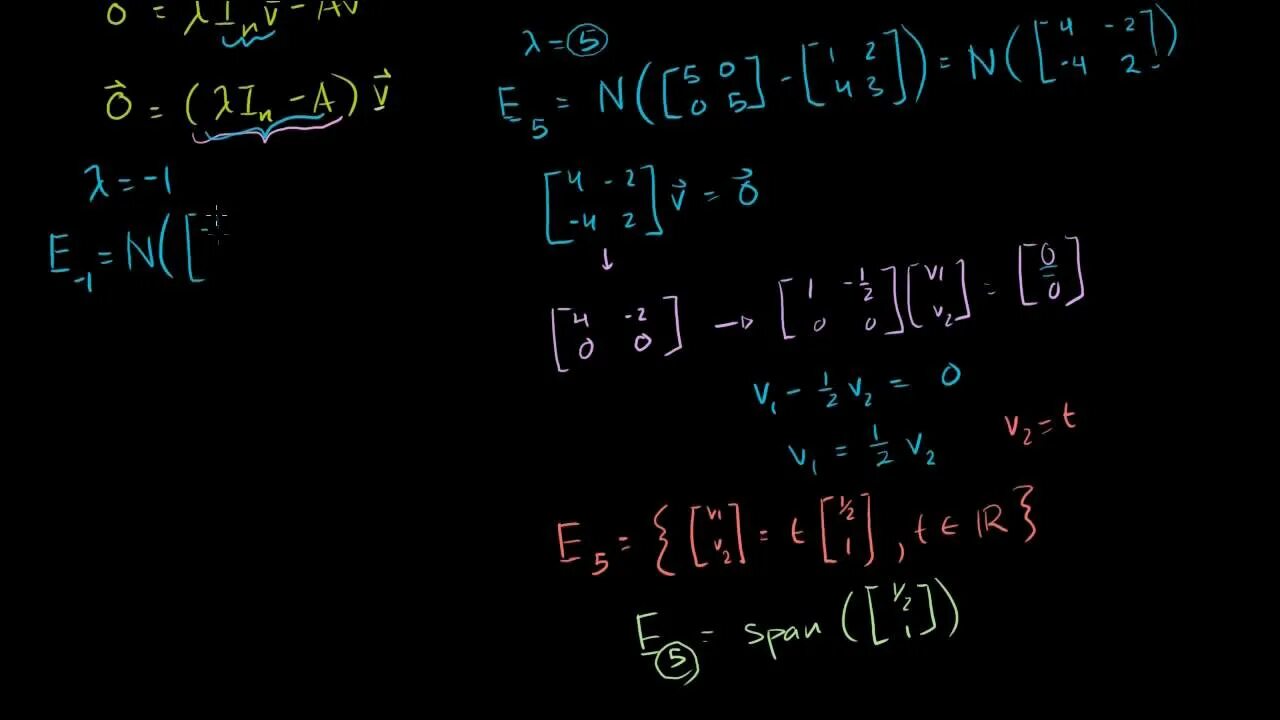 0 = λI_n v⃗ - Av⃗
0⃗ = (λI_n - A) v⃗
λ = -1
E_-1 = N([-
λ = 5
E_5 = N([5 0; 0 5] - [1 2; 4 3]) = N([4 -2; -4 2])
[4 -2; -4 2] v⃗ = 0⃗
↓
[4 -2; 0 0] → [1 -1/2; 0 0] [v_1; v_2] = [0; 0]
v_1 - 1/2 v_2 = 0
v_1 = 1/2 v_2 v_2 = t
E_5 = {[v_1; v_2] = t [1/2; 1], t ∈ ℝ}
E_5 = span([1/2; 1])